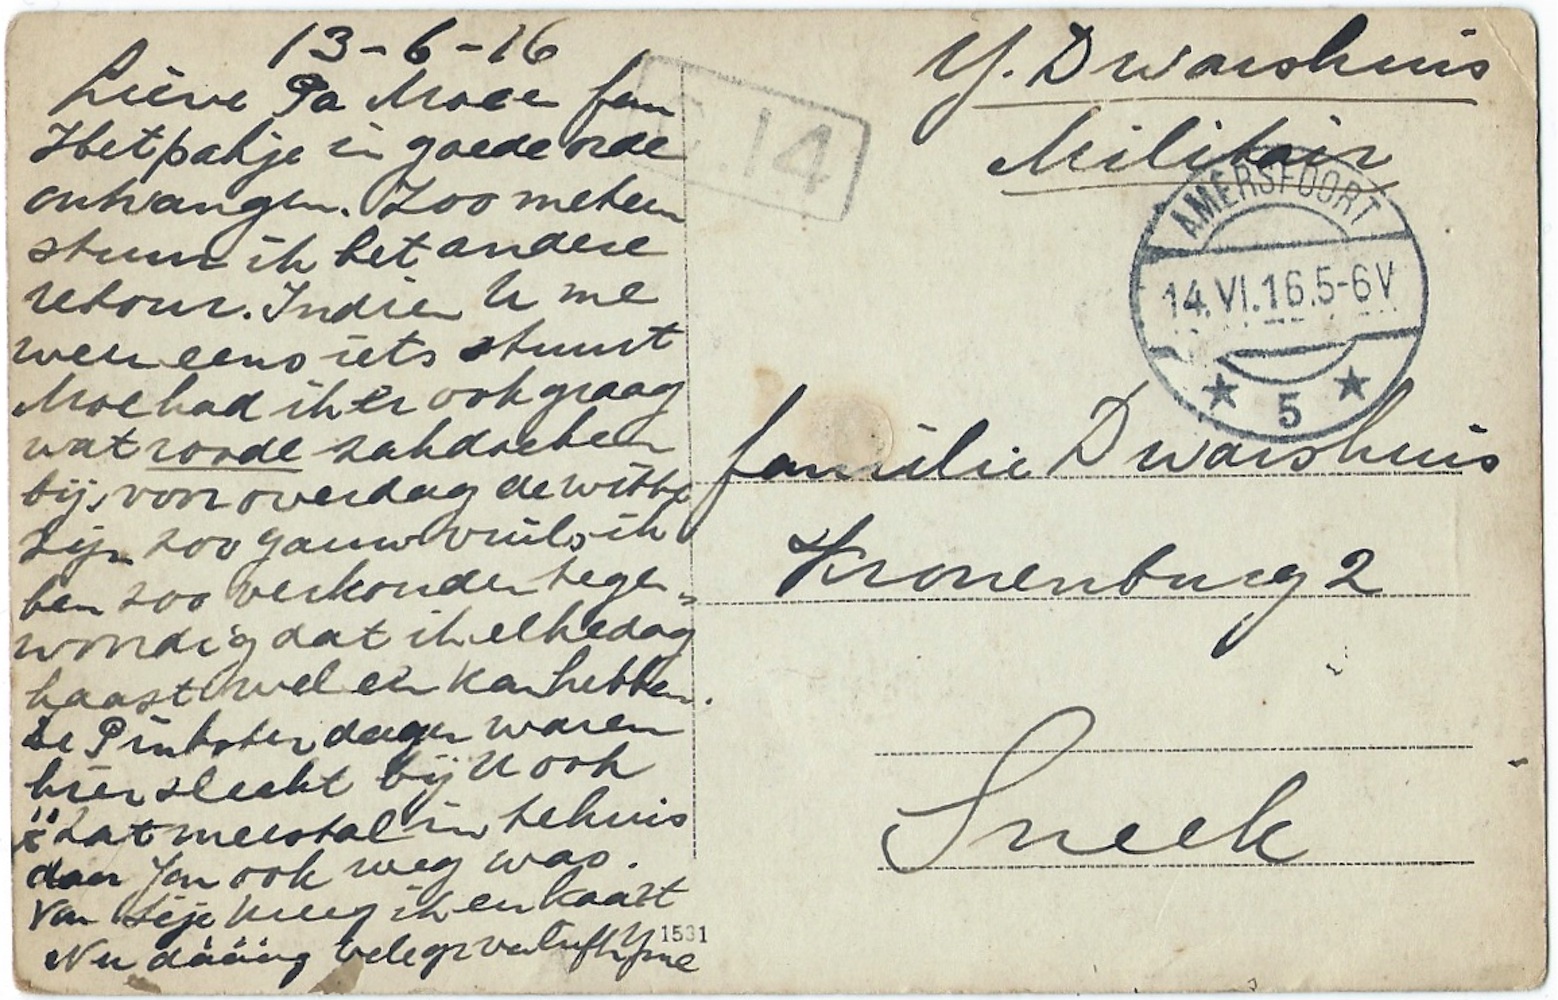 13-6-16
Lieve Pa Moe en Jan
Het pakje in goede orde
ontvangen. Zoo meteen
stuur ik het andere
retour. Indien U me
weer eens iets stuurt
Moe had ik er ook graag
wat roode zakdoeken
bij, voor overdag de witte
zijn zoo gauw vuil, ik
ben zoo verkouden tegen=
woordig dat ik elke dag
haast wel een kan hebben.
De Pinksterdagen waren
hier slecht bij U ook
Zat meestal in tehuis
daar Jan ook weg was.
Van kreeg ik een kaart
Nu dááág
1531
C.14
Y. Dwarshuis
Militair
AMERSFOORT
14.VI.16.5-6V
5
familie Dwarshuis
Kronenburg 2
Sneek